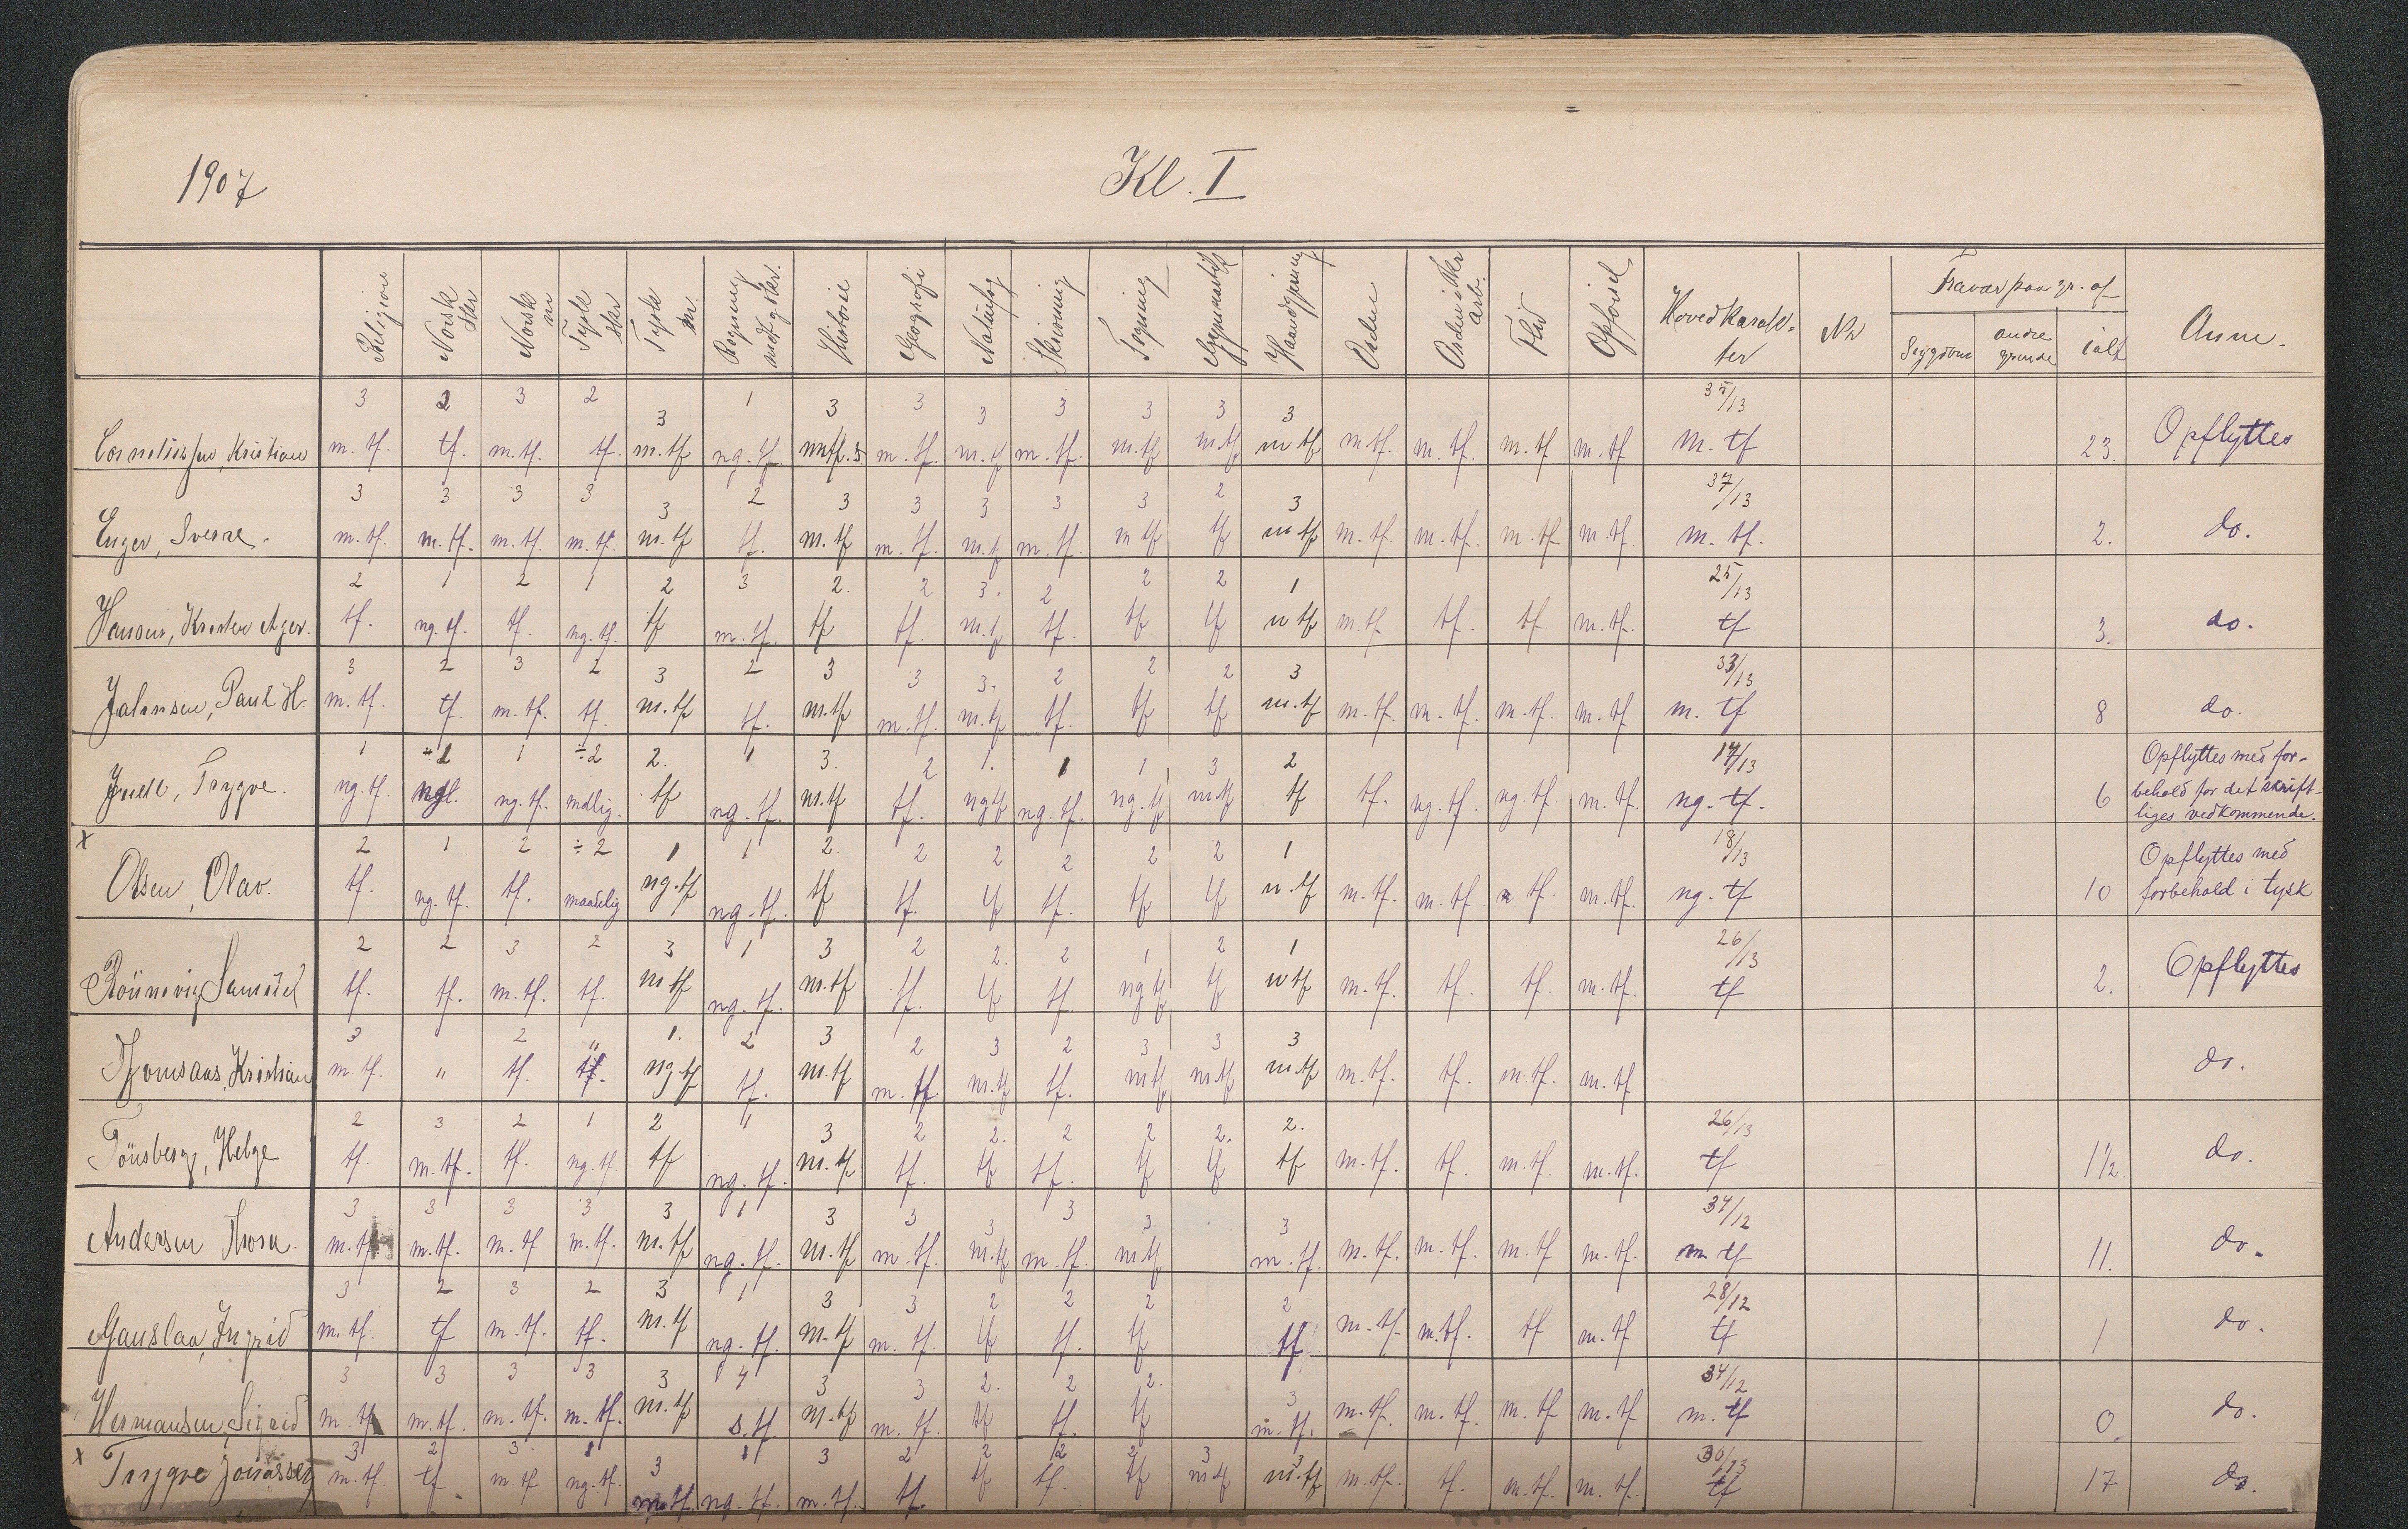 1907 Kl. I
Religion Norsk skr Norsk m Tysk skr Tysk m. Regning mdt. g skr. Historie Geografi Naturfag Skrivning Tegning Gymnastik Haandgjerning Orden Orden i skr arb. Flid Opførsel Hovedkarak- ter Nr Fravær paa gr. af Sygdom andre grunde ialt Anm.
3 2 3 2 3 1 3 3 3 3 3 3 3 35/13
Corneliussen, Kristian m. tf. tf. m. tf. tf. m. tf ng. tf m. tf. m. tf. m. tf m. tf. m. tf m. tf m tf m. tf. m. tf. m. tf m. tf M. tf 23. Opflyttes
3 3 3 3 3 2 3 3 3 3 3 2 3 37/13
Enger, Sverre. m. tf. m. tf. m. tf. m. tf. m. tf tf. m. tf m. tf. m. tf m. tf. m tf tf m tf m. tf. m. tf. m. tf m. tf. m. tf. 2. do.
2 1 2 1 2 3 2. 2 3. 2 2 2 1 25/13
Hansen, Kristen Ager. tf. ng. tf. tf. ng. tf. tf m. tf. tf tf. m. tf tf. tf tf n tf m. tf tf. tf. m. tf. tf 3. do.
3 2 3 2 3 2 3 3 3. 2 2 2 3 33/13
Johnsen, Paul H. m. tf. tf. m. tf. tf. m. tf tf. m. tf m. tf. m. tf tf. tf tf m. tf m. tf. m. tf. m. tf. m. tf m. tf 8 do.
1 1 1 ÷2 2. 1 3. 2 1. 1 1 3 2 14/13
Juell, Trygve. ng. tf. ng. tf. mdlig. tf ng. tf. m. tf tf. ng tf ng. tf. ng. tf m. tf tf tf. ng. tf. ng. tf. m. tf ng. tf. 6 Opflyttes med for-
behold for det skrift-
liges vedkommende.
x 2 1 2 ÷2 1 1 2. 2 2 2 2 2 1 18/13
Olsen, Olav. tf. ng. tf. tf. maadelig ng. tf ng. tf. tf tf. tf tf. tf tf n. tf m. tf. m. tf. tf. m. tf. ng. tf 10 Opflyttes med
forbehold i tysk
2 2 3 2 3 1 3 2 2. 2 1 2 1 26/13
Rönnevig Samuel tf. tf. m. tf. tf. m tf ng. tf. m. tf tf. tf tf. ng tf tf n tf m. tf. tf. tf. m. tf. tf 2. Opflyttes
3 " 2 " 1. 2 3 2 3 2 3 3 3
Kristian m. tf. " tf. tf. ng. tf tf. m. tf m. tf. m. tf tf. m tf m. tf m. tf m. tf. tf. m. tf. m. tf do.
2 3 2 1 2 " 3 2 2. 2 2 2. 2. 26/13
Tönsberg, Helge tf. m. tf. tf. ng. tf. tf ng. tf. m. tf tf. tf tf. tf tf tf m. tf. tf. m. tf. m. tf. tf 1 1/2. do.
3 3 3 3 3 1 3 3 3 3 3 3 34/12
Andersen Thora. m. tf m. tf. m. tf m. tf. m. tf ng. tf. m. tf m. tf. m. tf m. tf. m. tf m. tf. m. tf. m. tf. m. tf m. tf. m. tf 11. do.
3 2 3 2 3 1 3 3 2 2 2 2 28/12
Gauslaa, Ingrid m. tf. tf m. tf. tf. m. tf ng. tf. m. tf m. tf. tf tf. tf tf m. tf. m. tf. tf m. tf tf 1 do.
3 3 3 3 3 4 3 3 2. 2 2. 3 34/12
Hermansen, Sigrid m. tf m. tf. m. tf. m. tf. m. tf s. tf. m. tf m. tf. tf tf. tf m. tf. m. tf. m. tf. m. tf m. tf m. tf 0 do.
x 3 2 3 1 3 1 3 2 2 2 2 3 3 30/13
Trygve Jonassen m. tf. tf. m. tf ng. tf. m. tf. ng. tf. m. tf. tf. tf tf. tf m. tf m. tf m. tf. tf. m. tf. m. tf. tf 17 do.